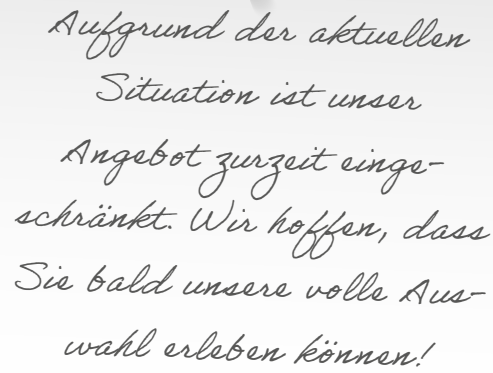 Aufgrund der aktuellen
Situation ist unser
Angebot zurzeit einge-
schränkt. Wir hoffen, dass
Sie bald unsere volle Aus-
wahl erleben können!